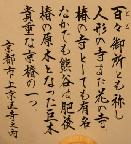 百々御所とも称し
人形の寺また花の寺
椿の寺としても有名
なかでも熊谷・肥後
椿の原木となった巨木
貴重な京椿の一つ。
京都市上京区寺之内